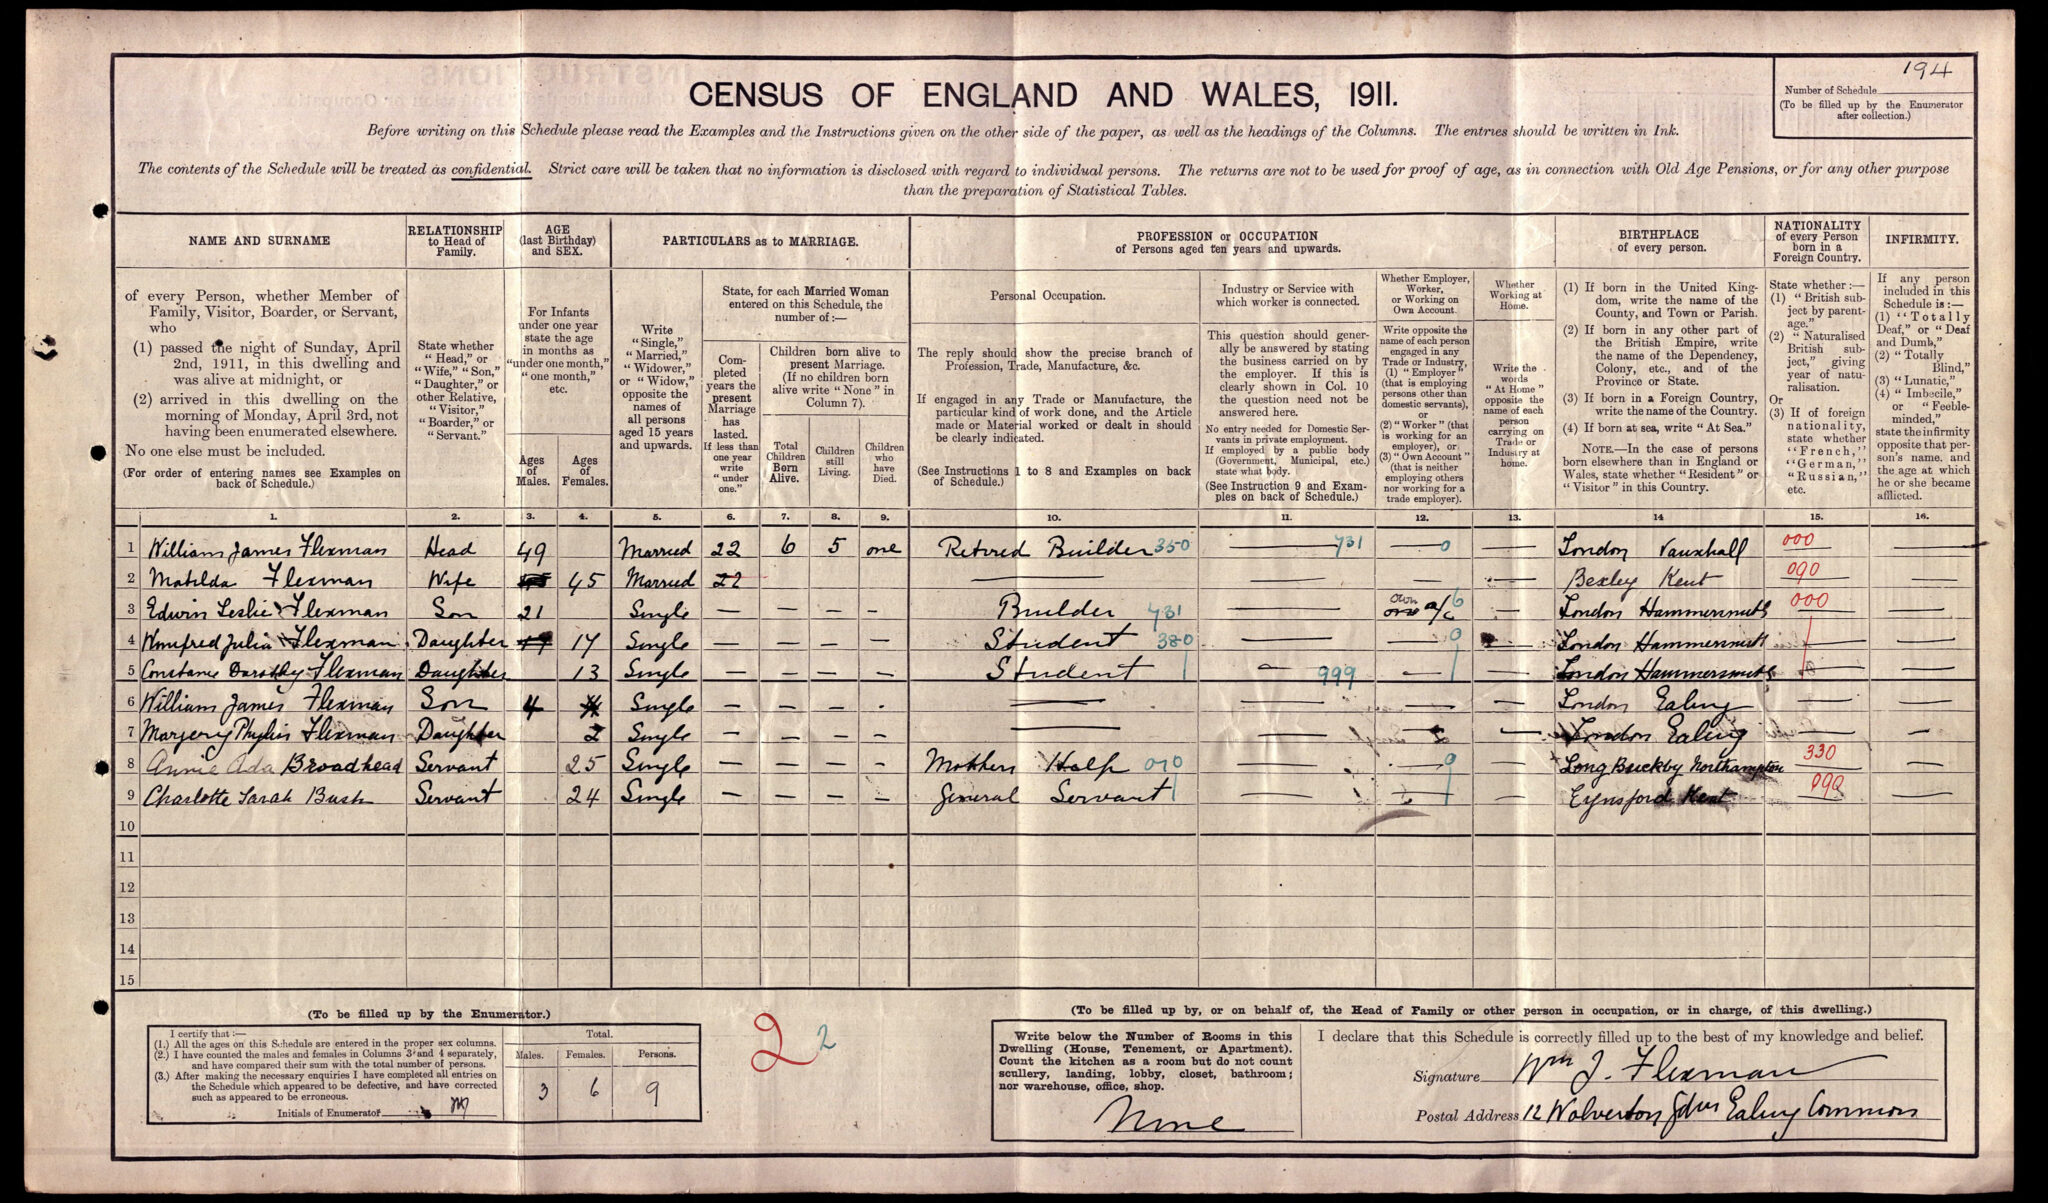 194
CENSUS OF ENGLAND AND WALES, 1911.
Number of Schedule
(To be filled up by the Enumerator
after collection.)
Before writing on this Schedule please read the Examples and the Instructions given on the other side of the paper, as well as the headings of the Columns. The entries should be written in Ink.
The contents of the Schedule will be treated as confidential. Strict care will be taken that no information is disclosed with regard to individual persons. The returns are not to be used for proof of age, as in connection with Old Age Pensions, or for any other purpose
than the preparation of Statistical Tables.
NAME AND SURNAME
of every Person, whether Member of
Family, Visitor, Boarder, or Servant,
who
(1) passed the night of Sunday, April
2nd, 1911, in this dwelling and
was alive at midnight, or
(2) arrived in this dwelling on the
morning of Monday, April 3rd, not
having been enumerated elsewhere.
No one else must be included.
(For order of entering names see Examples on
back of Schedule.)
RELATIONSHIP
to Head of
Family.
State whether
"Head," or
"Wife," "Son,"
"Daughter," or
other Relative,
"Visitor,"
"Boarder," or
"Servant."
AGE
(last Birthday)
and SEX.
For Infants
under one year
state the age
in months as
"under one month,"
"one month,"
etc.
Ages
of
Males.
Ages
of
Females.
PARTICULARS as to MARRIAGE.
Write
"Single,"
"Married,"
"Widower,"
or "Widow,"
opposite the
names of
all persons
aged 15 years
and upwards.
State, for each Married Woman
entered on this Schedule, the
number of:—
Completed
years the
present
Marriage
has
lasted.
If less than
one year
write
"under
one."
Children born alive to
present Marriage.
(If no children born
alive write "None" in
Column 7).
Total
Children
Born
Alive.
Children
still
Living.
Children
who
have
Died.
PROFESSION or OCCUPATION
of Persons aged ten years and upwards.
Personal Occupation.
The reply should show the precise branch of
Profession, Trade, Manufacture, &c.
If engaged in any Trade or Manufacture, the
particular kind of work done, and the Article
made or Material worked or dealt in should
be clearly indicated.
(See Instructions 1 to 8 and Examples on back
of Schedule.)
Industry or Service with
which worker is connected.
This question should gener-
ally be answered by stating
the business carried on by
the employer. If this is
clearly shown in Col. 10
the question need not be
answered here.
No entry needed for Domestic Ser-
vants in private employment.
If employed by a public body
(Government, Municipal, etc.)
state what body.
(See Instruction 9 and Exam-
ples on back of Schedule.)
Whether Employer,
Worker,
or Working on
Own Account.
Write opposite the
name of each person
engaged in any
Trade or Industry,
(1) "Employer"
(that is employing
persons other than
domestic servants),
or
(2) "Worker" (that
is working for an
employer), or
(3) "Own Account"
(that is neither
employing others
nor working for a
trade employer).
Whether
Working at
Home.
Write the
words
"At Home"
opposite the
name of each
person
carrying on
Trade or
Industry at
home.
BIRTHPLACE
of every person.
(1) If born in the United King-
dom, write the name of the
County, and Town or Parish.
(2) If born in any other part of
the British Empire, write
the name of the Dependency,
Colony, etc., and of the
Province or State.
(3) If born in a Foreign Country,
write the name of the Country.
(4) If born at sea, write "At Sea."
NOTE.—In the case of persons
born elsewhere than in England or
Wales, state whether "Resident" or
"Visitor" in this Country.
NATIONALITY
of every Person
born in a
Foreign Country.
State whether:—
(1) "British sub-
ject by parent-
age."
(2) "Naturalised
British sub-
ject," giving
year of natu-
ralisation.
Or
(3) If of foreign
nationality,
state whether
"French,"
"German,"
"Russian,"
etc.
INFIRMITY.
If any person
included in this
Schedule is:—
(1) "Totally
Deaf," or "Deaf
and Dumb,"
(2) "Totally
Blind,"
(3) "Lunatic,"
(4) "Imbecile,"
or "Feeble-
minded,"
state the infirmity
opposite that per-
son's name, and
the age at which
he or she became
afflicted.
1. 2. 3. 4. 5. 6. 7. 8. 9. 10. 11. 12. 13. 14 15. 16.
1 William James Flexman Head 49 Married 22 6 5 one Retired Builder 350 — 731 — 0 — London Vauxhall 000 —
2 Matilda Flexman Wife 45 Married 22 — — — — Bexley Kent 090 —
3 Edwin Leslie Flexman Son 21 Single — — — — Builder 731 — own a/c 6 — London Hammersmith 000 —
4 Winifred Julia Flexman Daughter 17 Single — — — — Student 380 — — 0 — London Hammersmith —
5 Constance Dorothy Flexman Daughter 13 Single — — — — Student — 999 — — London Hammersmith —
6 William James Flexman Son 4 Single — — — — — — — London Ealing — —
7 Margery Phyllis Flexman Daughter 2 Single — — — — — — — London Ealing —
8 Annie Ada Broadhead Servant 25 Single — — — — Mothers Help 010 — — 0 — Long Buckby Northampton 330 —
9 Charlotte Sarah Bush Servant 24 Single — — — — General Servant — — Eynsford Kent 090 —
10
11
12
13
14
15
(To be filled up by the Enumerator.)
I certify that:—
(1.) All the ages on this Schedule are entered in the proper sex columns.
(2.) I have counted the males and females in Columns 3 and 4 separately,
and have compared their sum with the total number of persons.
(3.) After making the necessary enquiries I have completed all entries on
the Schedule which appeared to be defective, and have corrected
such as appeared to be erroneous.
Initials of Enumerator
Total.
Males. Females. Persons.
3 6 9
2 2
(To be filled up by, or on behalf of, the Head of Family or other person in occupation, or in charge, of this dwelling.)
Write below the Number of Rooms in this
Dwelling (House, Tenement, or Apartment).
Count the kitchen as a room but do not count
scullery, landing, lobby, closet, bathroom;
nor warehouse, office, shop.
Nine
I declare that this Schedule is correctly filled up to the best of my knowledge and belief.
Signature Wm J. Flexman
Postal Address 12 Wolverton Gdns Ealing Common